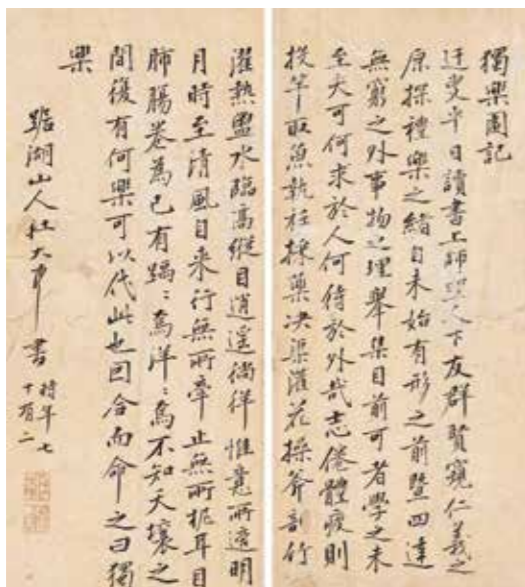 獨樂園記
迂叟平日讀書上師聖人下友群賢窺仁義之
原探禮樂之緒自未始有形之前暨四達
無窮之外事物之理舉集目前可者學之未
至夫可何求於人何待於外哉志倦體疲則
投竿取魚執衽採藥決渠灌花操斧剖竹
濯熱盥水臨高縱目逍遙徜徉惟意所適明
月時至清風自来行無所牽止無所柅耳目
肺腸卷為己有踽〻焉洋〻焉不知天壤之
間復有何樂可以代此也因合而命之曰獨
樂
踞湖山人杜大中書
時年七
十有二